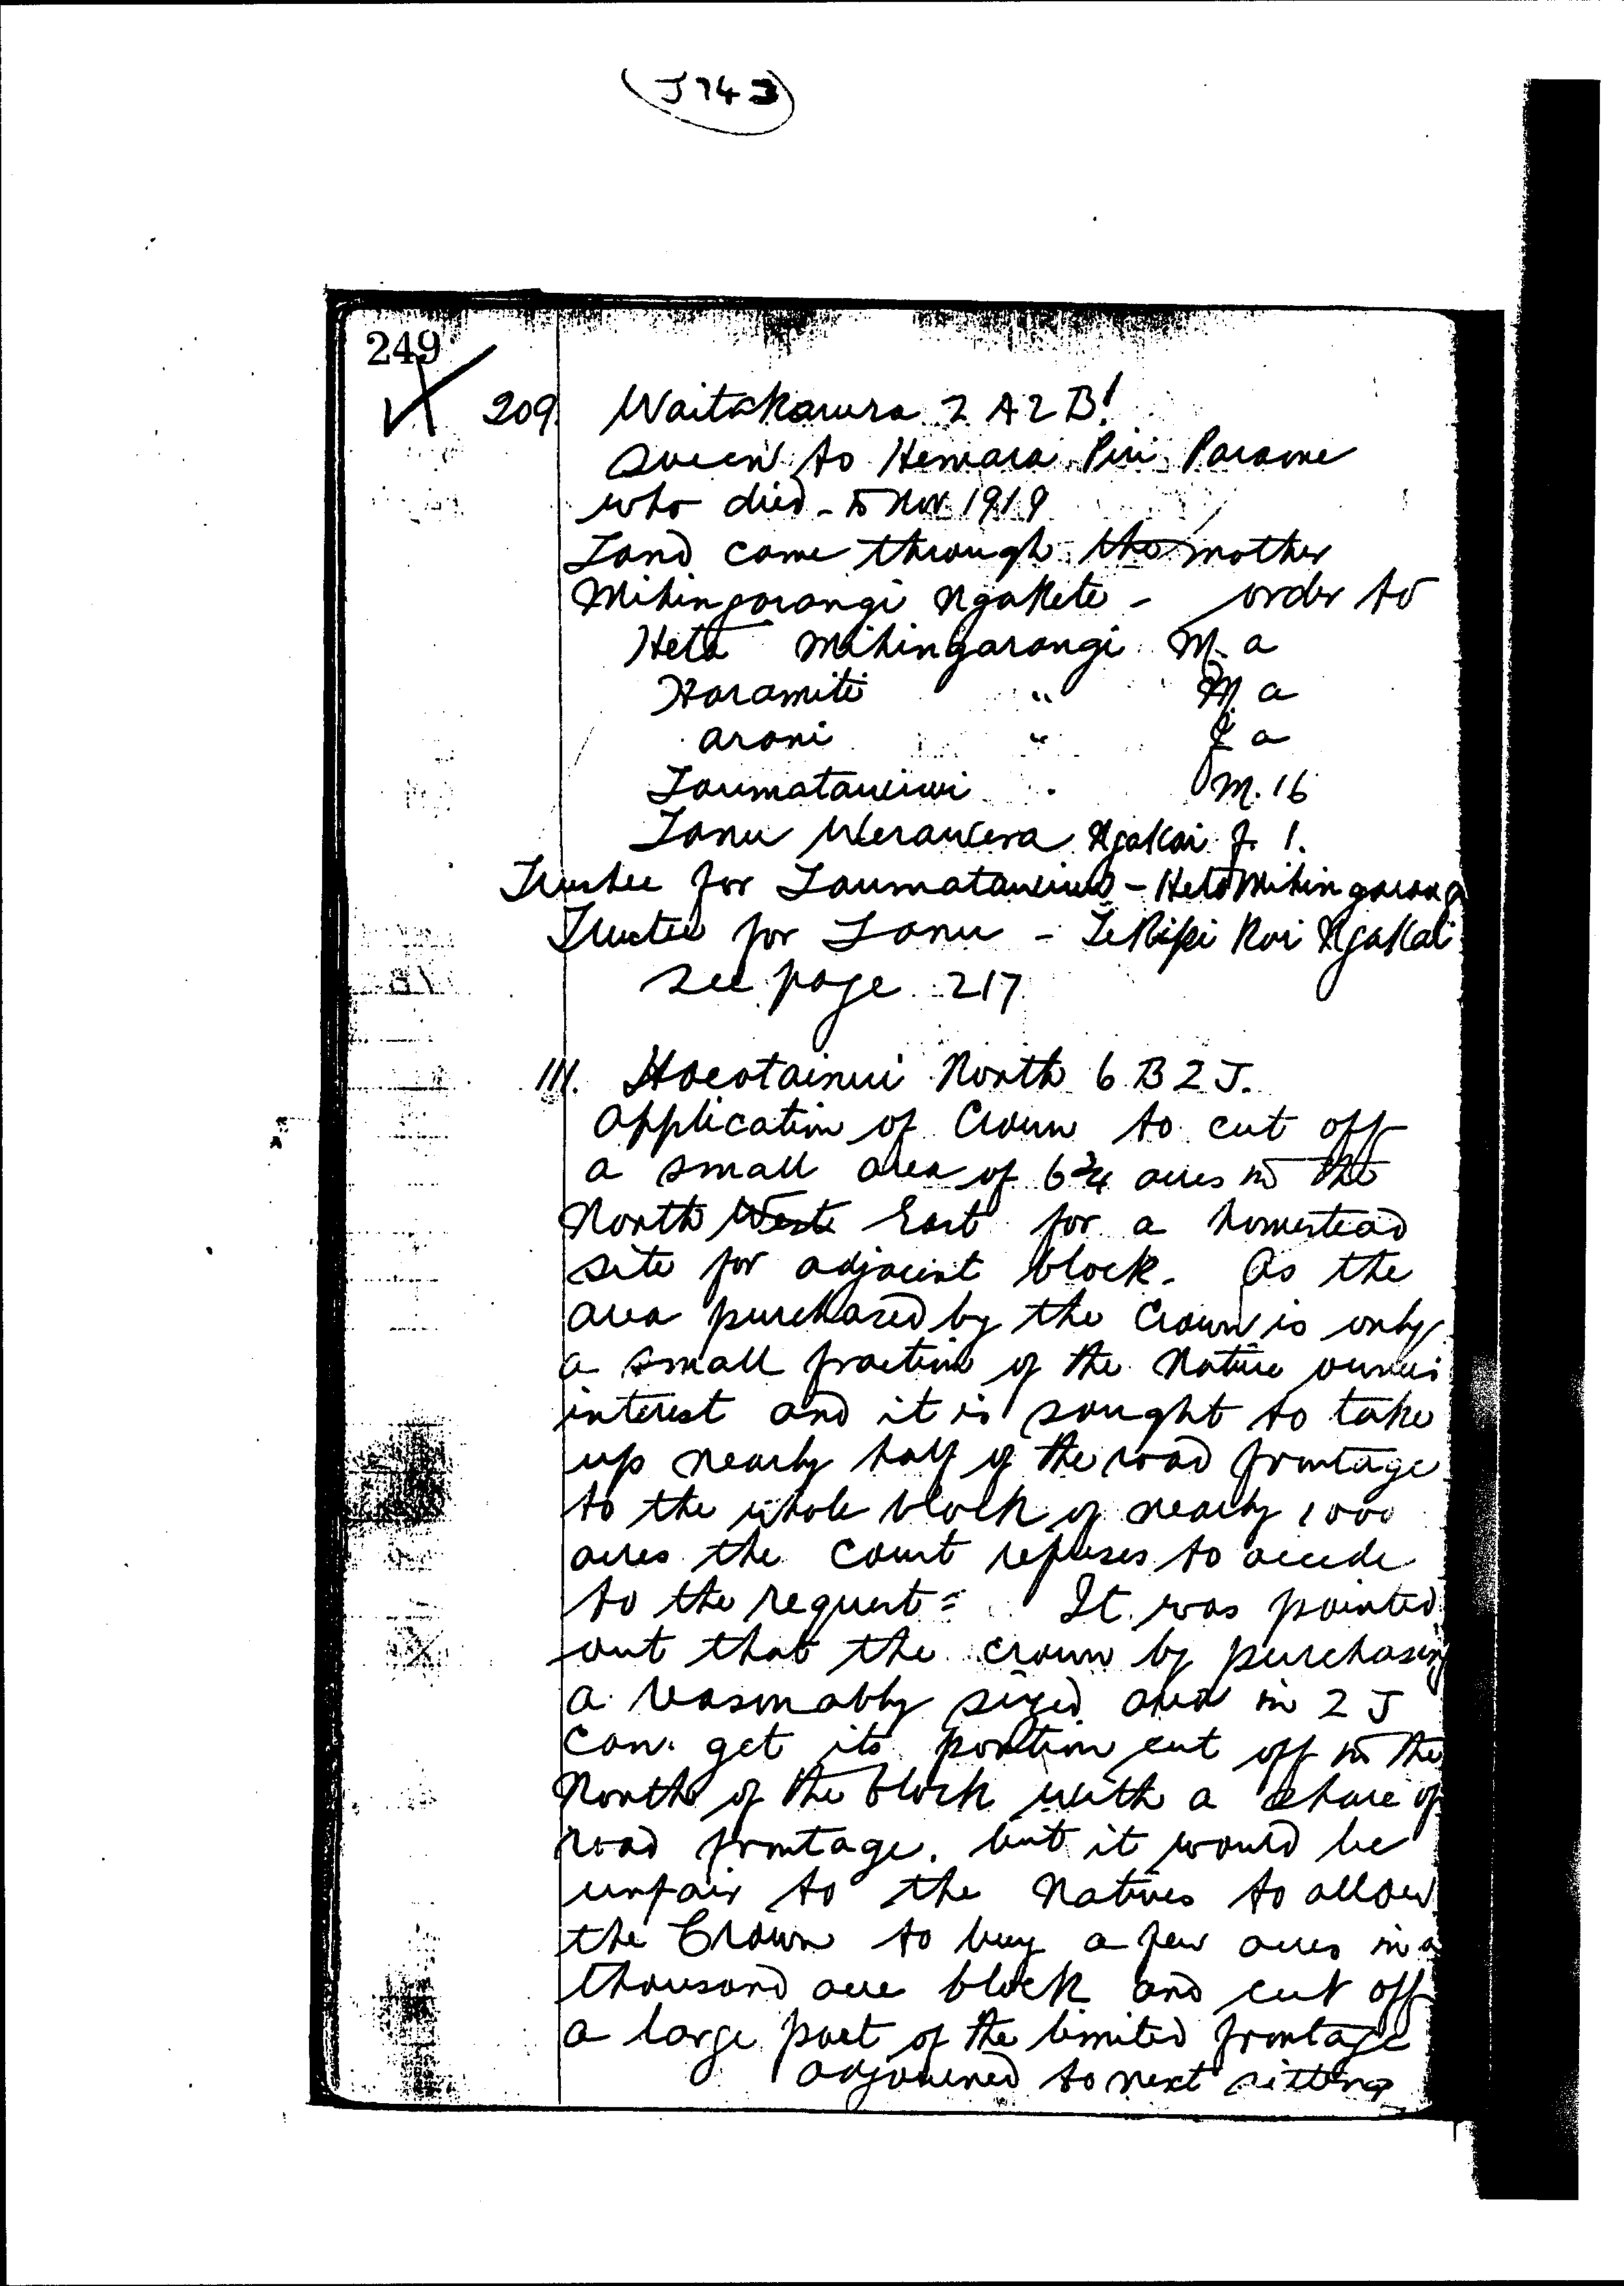 J743
249
209. Waitakaruru 2 A 2 B1
Succn to Hemara Piri Parame
who died - 5 Nov. 1919
Land came through the mother
Mihingarangi Ngakete - order to
Heta Mihingarangi M. a
Haramiti " M. a
Arani " F a
Taumatawiwi . M. 16
Tanu Werawera Ngakai F. 1.
Trustee for Taumatawiwi - Heta Mihingarangi
Trustee for Tanu - Te Ripi Koi Ngakai
See page 217
111. Hoeotainui North 6 B 2 J.
Application of Crown to cut off
a small area of 6 3/4 acres in the
North West East for a homestead
site for adjacent block. As the
area purchased by the Crown is only
a small fraction of the Native owners
interest and it is sought to take
up nearly half of the road frontage
to the whole block of nearly 1000
acres the Court refuses to accede
to the request = It was pointed
out that the Crown by purchasing
a reasonably sized area in 2 J
can get its portion cut off in the
North of the block with a share of
road frontage. but it would be
unfair to the Natives to allow
the Crown to buy a few acres in a
thousand acre block and cut off
a large part of the limited frontage
adjourned to next sitting